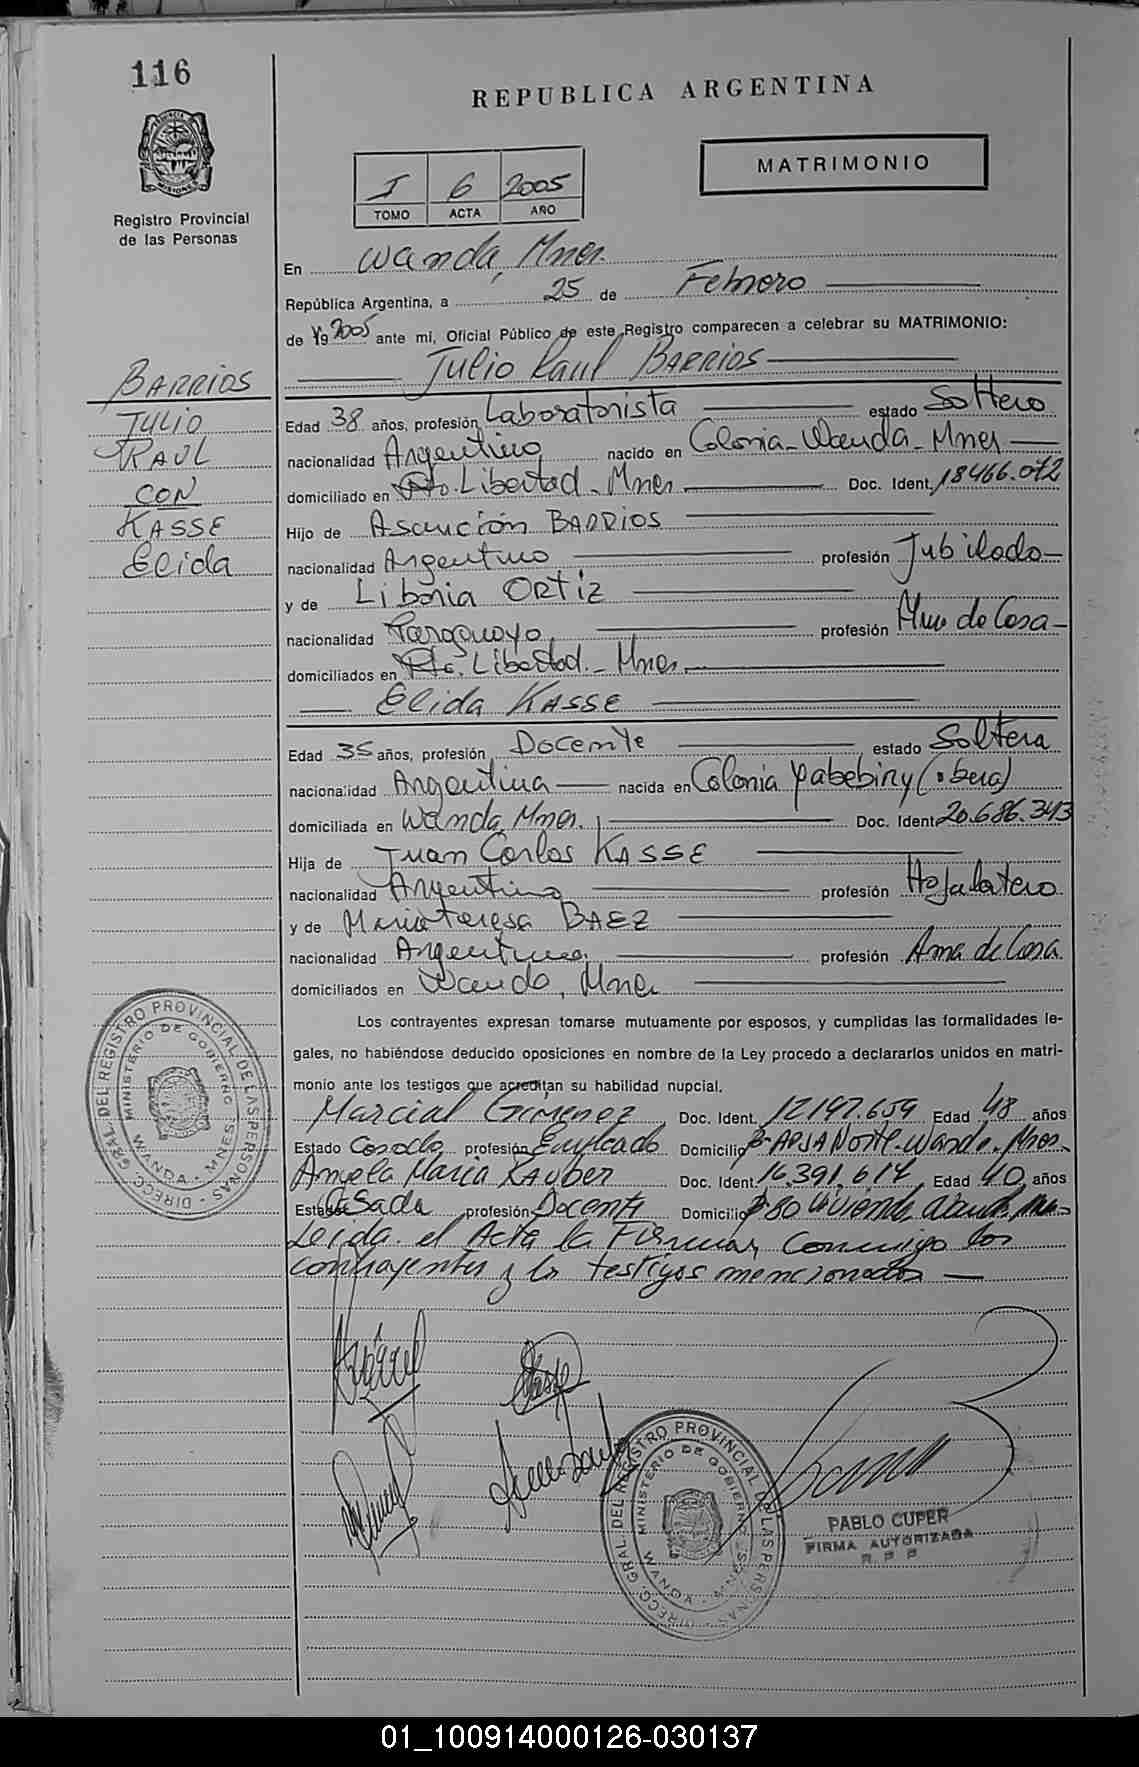 116
REPUBLICA ARGENTINA
MATRIMONIO
I 6 2005
TOMO ACTA AÑO
Registro Provincial
de las Personas
En Wanda, Mnes.
República Argentina, a 25 de Febrero
de 19 2005 ante mi, Oficial Público de este Registro comparecen a celebrar su MATRIMONIO:
Julio Raul BARRIOS
BARRIOS
JULIO
RAUL
CON
KASSE
Elida
Edad 38 años, profesión Laboratorista estado Soltero
nacionalidad Argentino nacido en Colonia-Wanda-Mnes
domiciliado en Pto. Libertad-Mnes Doc. Ident. 18466.072
Hijo de Asunción BARRIOS
nacionalidad Argentino profesión Jubilado
y de Liboria ORTIZ
nacionalidad Paraguaya profesión Ama de Casa
domiciliados en Pto. Libertad.-Mnes.
Elida KASSE
Edad 35 años, profesión Docente estado Soltera
nacionalidad Argentina nacida en Colonia Yabebiry (Obera)
domiciliada en Wanda, Mnes. Doc. Ident. 20.686.343
Hija de Juan Carlos KASSE
nacionalidad Argentino profesión Hojalatero
y de Maria Teresa BAEZ
nacionalidad Argentina profesión Ama de Casa
domiciliados en Wanda, Mnes
Los contrayentes expresan tomarse mutuamente por esposos, y cumplidas las formalidades le-
gales, no habiéndose deducido oposiciones en nombre de la Ley procedo a declararlos unidos en matri-
monio ante los testigos que acreditan su habilidad nupcial.
Marcial GIMENEZ Doc. Ident. 12197.659 Edad 48 años
Estado Casado profesión Empleado Domicilio Norte-Wanda-Mnes
Angela Maria Doc. Ident. 16.391.614 Edad 40 años
Estado Casada profesión Docente Domicilio 80 Vivienda, Wanda, Mnes
Leida el Acta la Firman Conmigo los
contrayentes y los testigos mencionados
DIRECC. GRAL. DEL REGISTRO PROVINCIAL DE LAS PERSONAS
MINISTERIO DE GOBIERNO
WANDA - MNES.
DIRECC. GRAL. DEL REGISTRO PROVINCIAL DE LAS PERSONAS
MINISTERIO DE GOBIERNO
WANDA - MNES.
PABLO CUPER
FIRMA AUTORIZADA
R P P
01_100914000126-030137